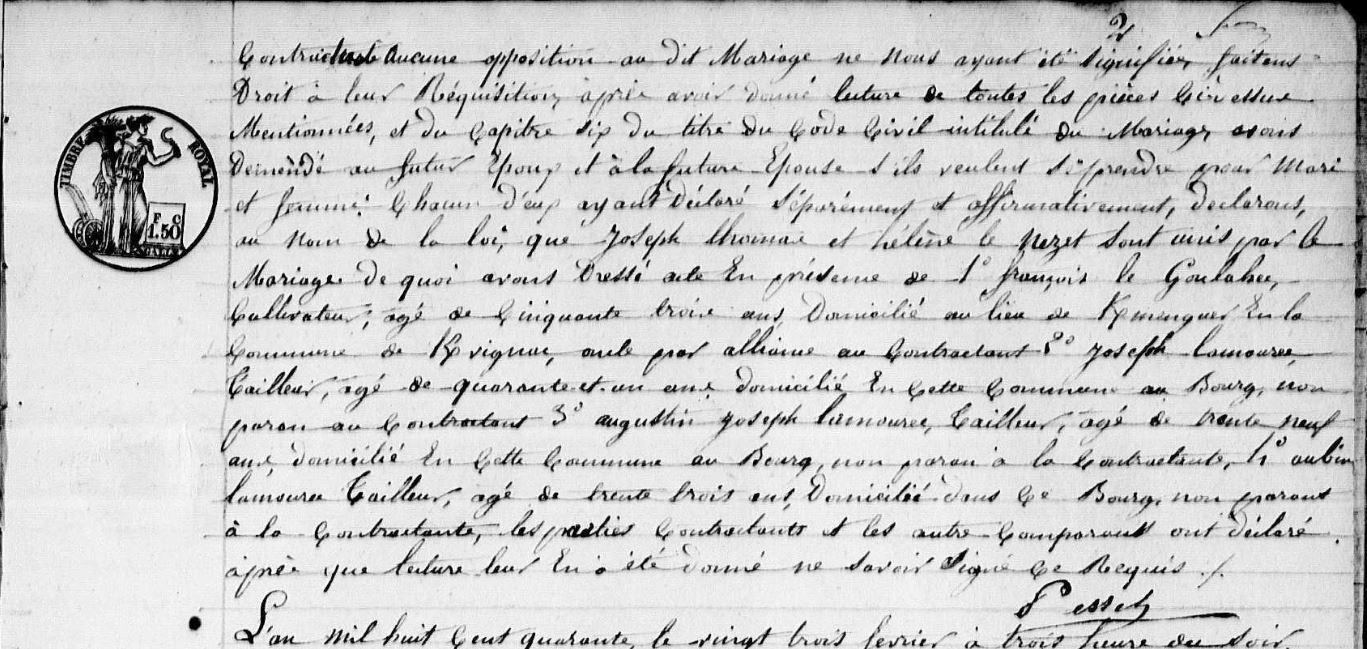 2
Contractants aucune opposition au dit Mariage ne Nous ayant été Signifiée, faisans
Droit à leur Réquisition, après avoir donné lecture de toutes les pièces Cidessus
Mentionnées, et du Capitre six du titre du Code Civil intitulé du Mariage, avons
Demandé au futur Epoux et à la future Epouse s'ils veulent se prendre pour Mari
et femme: Chacun d'eux ayant Déclaré Séparément et affirmativement, declarons,
au Nom de la loi, que Joseph thomae et hélène le Nezet Sont unis par le
Mariage de quoi avons Dressé acte En présence de 1° françois le Goulaher,
Cultivateur, agé de Cinquante trois ans, Domicilié au lieu de Kmenguer En la
Commune de Kvignac, oncle par alliance au Contractant 2° Joseph lamouree,
Tailleur, agé de quarante et un ans, domicilié En Cette Commune au Bourg, non
paran au Contractant 3° augustin Joseph lamouree, Tailleur, agé de trente neuf
ans, domicilié En Cette Commune au Bourg, non paran à la Contractante, 4° aubin
lamouree Tailleur, agé de trente trois ans, Domicilié dans Ce Bourg, non parant
à la Contractante, les parties Contractants et les autre Comparant ont déclaré
après que lecture leur En a été donné ne Savoir Signé Ce Requis ./.
TIMBRE ROYAL
F. C
1.50
L'an mil huit Cent quarante, le vingt trois fevrier à trois heure du soir,